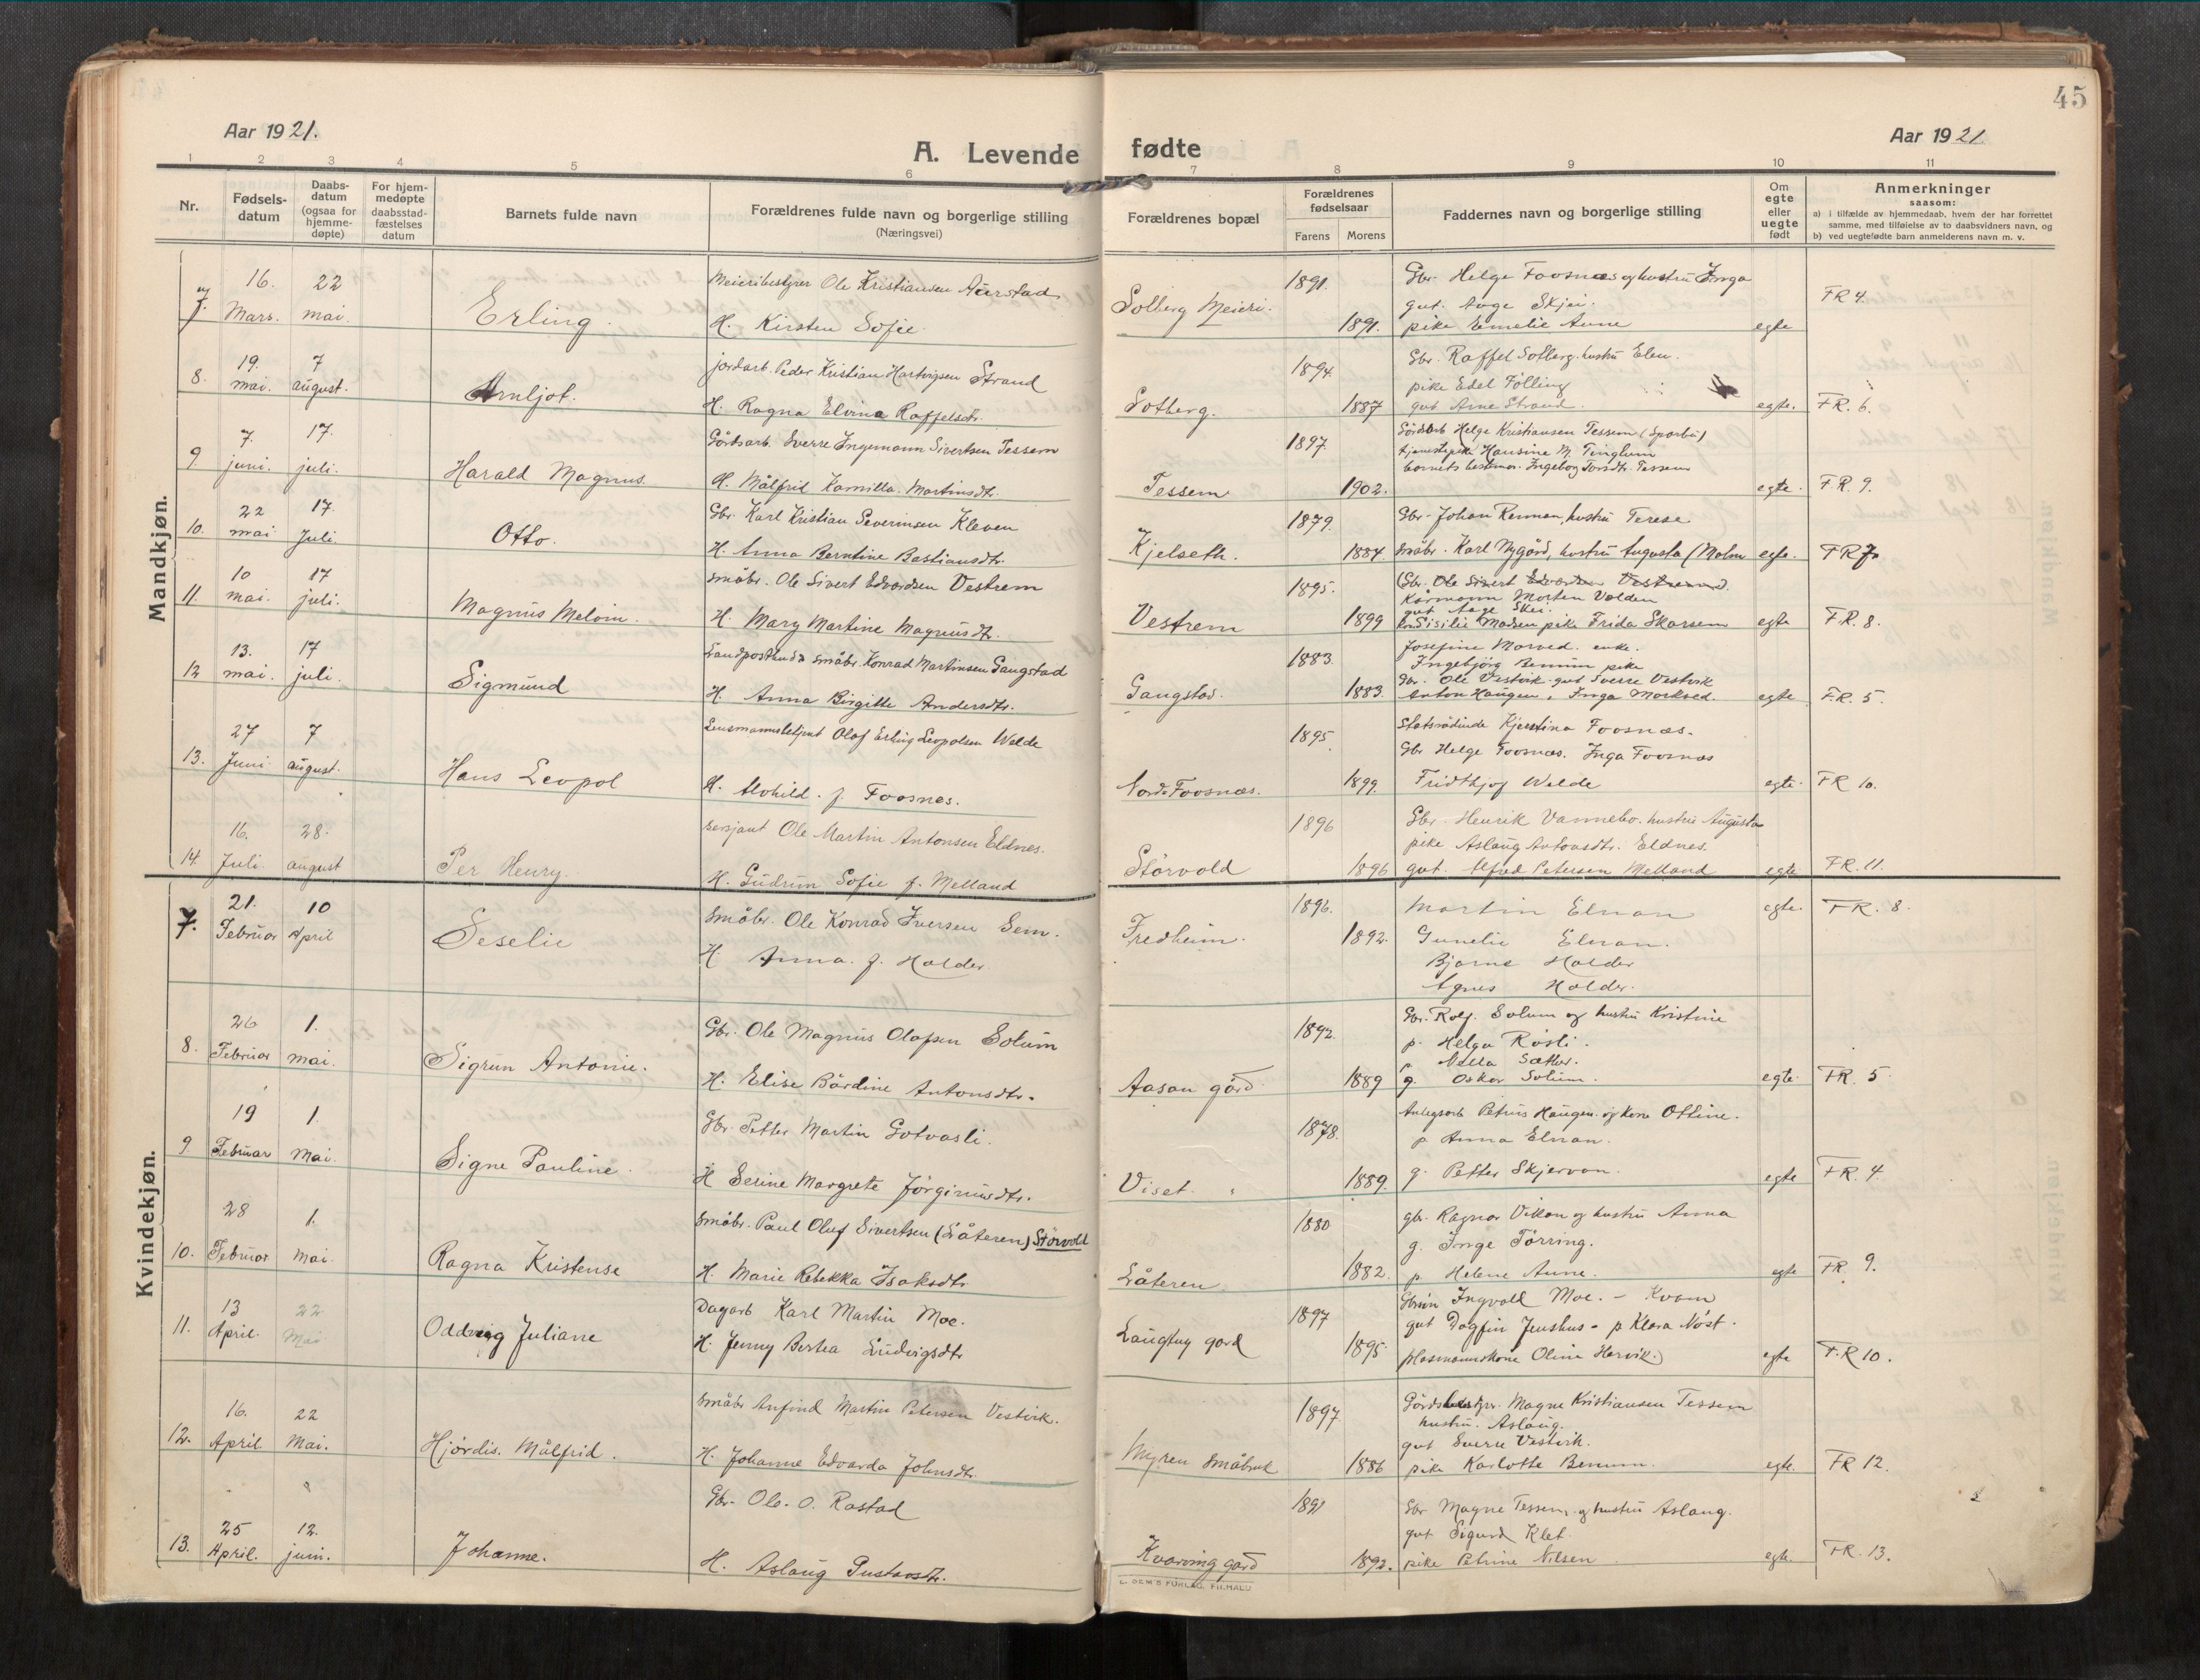 45
Aar 1921.
A. Levende fødte
Aar 1921
1 2 3 4 5 6 7 8 9 10 11
Nr.
Fødsels-
datum
Daabs-
datum
(ogsaa for
hjemme-
døpte)
For hjem-
medøpte
daabsstad-
fæstelses
datum
Barnets fulde navn
Forældrenes fulde navn og borgerlige stilling
(Næringsvei)
Forældrenes bopæl
Forældrenes
fødselsaar
Farens Morens
Faddernes navn og borgerlige stilling
Om
egte
eller
uegte
født
Anmerkninger
saasom:
a) i tilfælde av hjemmedaab, hvem der har forrettet
samme, med tilføielse av to daabsvidners navn, og
b) ved uegtefødte barn anmelderens navn m. v.
Mandkjøn.
7. 16. Mars. 22 mai. Erling.
Meieribestyrer Ole Kristiansen Aurstad
H. Kirsten Sofie.
Solberg Meieri. 1891. 1891.
Gbr. Helge Foosnæs og hustru Inga
gut. Aage Skjei.
pike Emelie Aune
egte FR 4.
8. 19. mai. 7 august. Arnljot.
jordarb. Peder Kristian Hartvigsen Strand
H. Ragna Elvina Raffelsdtr.
Solberg. 1894. 1887
Gbr. Raffel Solberg. hustru Elen.
pike Edel Følling
gut Arne Strand.
egte. FR. 6.
9. 7. juni. 17. juli. Harald Magnus
Gårdsarb. Sverre Ingemann Sivertsen Tessem
H. Målfrid Kamilla. Martinsdtr.
Tessem 1897. 1902.
Gårdarb Helge Kristiansen Tessem (Sparbu)
tjenestepike Hansine M. Tinglum
barnets bestemor. Ingeborg Torsdtr. Tessem
egte. FR. 9.
10. 22 mai 17. Juli. Otto.
Gbr. Karl Kristian Severinsen Kleven
H. Anna Berntine Bastiansdtr.
Kjelseth. 1879. 1884
Gbr. Johan Renman, hustru Terese
småbr. Karl Nygård, hustru Augusta (Malm
egte. FR 7
11. 10 mai. 17 juli. Magnus Meloin.
småbr. Ole Sivert Edvardsen Vestrem
H. Mary Martine Magnusdtr.
Vestrem 1895. 1899
(Gbr. Ole Sivert Edvardsen Vestremvd.
Kårmann Morten Valden
gut Aage Skei.
Sisilie Madsen pike Frida Skarsem
egte FR. 8.
12 13. mai. 17 juli. Sigmund
Landpostbud & småbr. Konrad Martinsen Gangstad
H. Anna Birgitte Andersdtr.
Gangstad. 1883. 1883.
Josefine Morved. enke.
Ingebjörg Benum pike
Gbr. Ole Vestvik. gut Sverre Vestvik
Anton Haugen, Inga Morkved.
egte FR. 5.
13. 27 Juni. 7 august. Hans Leopol
Lensmannsbetjent Olaf Erling Leopolsen Welde
H. Alvhild. f. Foosnes.
Nord-Foosnæs. 1895 1899.
Statsrådinde Kjerstina Foosnæs.
Gbr Helge Foosnæs. Inga Foosnæs
Fridthjof Welde
egte. FR 10.
14. 16. Juli. 28. august Per Henry.
sersjant Ole Martin Antonsen Eldnes.
H. Gudrun Sofie f. Melland
Störvold 1896 1896
Gbr. Henrik Vannebo. hustru Augusta
pike Aslaug Antonsdtr. Eldnes.
gut. Alfred Petersen Melland
egte FR. 11.
Kvindekjøn.
7. 21. Februar 10 April Seselie
Småbr. Ole Konrad Iversen Sem.
H Anna. f. Holder
Fredheim. 1896. 1892.
Martin Elnan
Gunelie Elnan.
Bjarne Holder
Agnes Holder.
egte. FR. 8.
8. 26 Februar 1. mai. Sigrun Antonie.
Gbr. Ole Magnus Olafsen Solum
H. Elise Bårdine Antonsdtr.
Aasan gård. 1892. 1889
Gbr. Rolf. Solum og hustru Kristine
p. Helga Rösli.
p Nella Sæther.
g. Oskar Solum.
egte. FR. 5
9 19 Februar 1. Mai. Signe Pauline.
Gbr. Petter Martin Gotvasli.
H Serine Margrete Jörginusdtr.
Viset. 1878. 1889.
Anlegsarb Petrus Haugen. og kone Ottine.
p Anna Elnan.
g. Petter Skjervan.
egte FR. 4.
10. 28 Februar 1. Mai. Ragna Kristense
Småbr. Paul Oluf Sivertsen (Låteren) Störvold
H. Marie Rebekka Isaksdtr.
Låteren. 1880 1882.
gbr. Ragnar Vikan og hustru Anna
g. Inge Törring.
p Helene Aune.
egte FR. 9.
11. 13 April. 22 Mai Oddveig Juliane
Dagarb Karl Martin Moe.
H. Jenny Bertea Ludvigsdtr
Laugtug gard 1897 1895
Ingvall Moe. - Kvam
gut Dagfin Jenshus - p Klara Nöst.
plasmannskone Oline Hervik.)
egte F.R 10.
12. 16. April. 22 Mai. Hjördis. Målfrid.
småbr Anfind Martin Petersen Vestvik.
H. Johanne Edvarda Johnsdtr.
Myren småbruk 1897 1886
Gårdsbestyr. Magne Kristiansen Tessem
hustru. Aslaug.
gut Sverre Vestvik.
pike Karlotte Benum.
egte. FR 12.
13. 25 April. 12. juni. Johanne.
Gbr. Ole. O. Rostad
H. Aslaug Gustavsdtr.
Kvarving gard 1891 1892.
Gbr Magne Tessem, og hustru Aslaug.
gut Sigurd Klet.
pike Petrine Nilsen
egte. FR. 13.